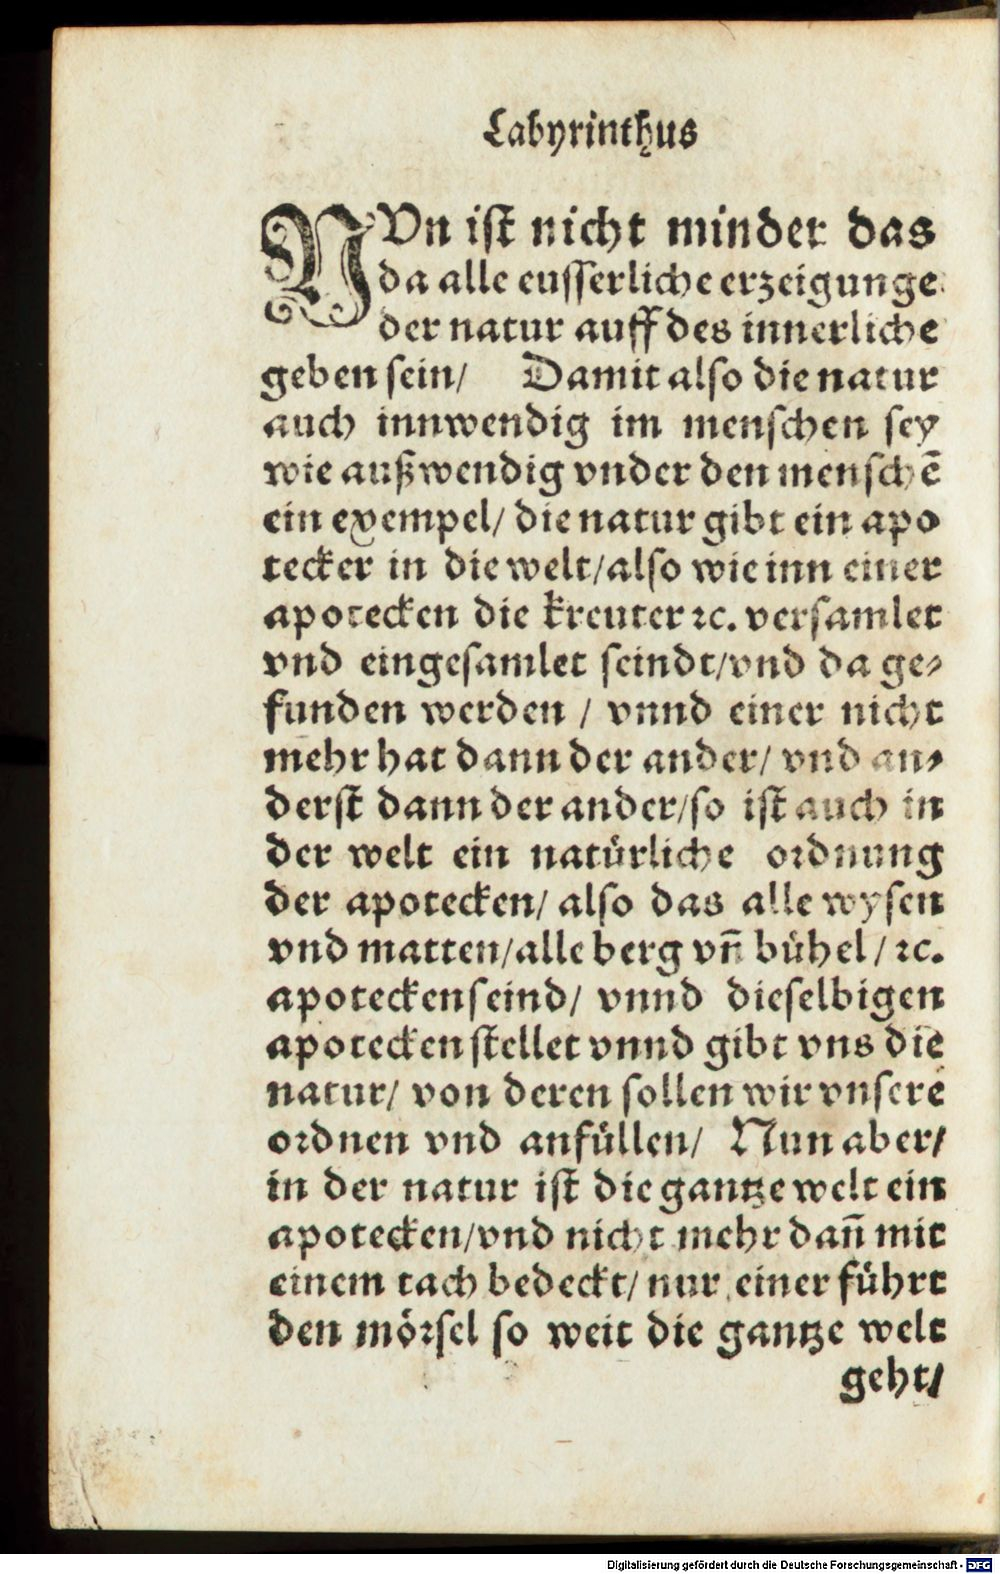 Labyrinthus
NVn ist nicht minder das
da alle eusserliche erzeigunge
der natur auff des innerliche
geben sein/ Damit also die natur
auch innwendig im menschen sey
wie außwendig vnder den menschē
ein exempel/ die natur gibt ein apo
tecker in die welt/ also wie inn einer
apotecken die kreuter ꝛc. versamlet
vnd eingesamlet seindt/ vnd da ge⸗
funden werden / vnnd einer nicht
mehr hat dann der ander/ vnd an⸗
derst dann der ander/ so ist auch in
der welt ein natürliche ordnung
der apotecken/ also das alle wysen
vnd matten/ alle berg vñ bühel / ꝛc.
apotecken seind/ vnnd dieselbigen
apotecken stellet vnnd gibt vns die
natur/ von deren sollen wir vnsere
ordnen vnd anfüllen/ Nun aber/
in der natur ist die gantze welt ein
apotecken/ vnd nicht mehr dañ mit
einem tach bedeckt/ nur einer führt
den mörsel so weit die gantze welt
geht/
Digitalisierung gefördert durch die Deutsche Forschungsgemeinschaft - DFG